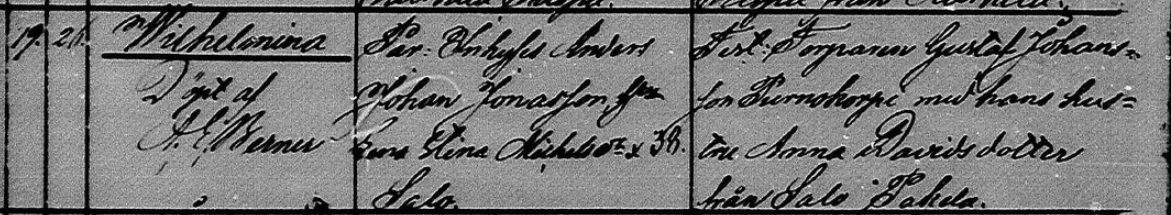 19. 21. Wilhelmina
Döpt af
A. E. Berner
Par: Inhyses Anders
Johan Jonasson
Lena Stina Michelsdr 38.
Salo.
Test: Torparen Gustaf Johans=
son med hans hus=
tru Anna Davidsdotter
från Salo Pakela.